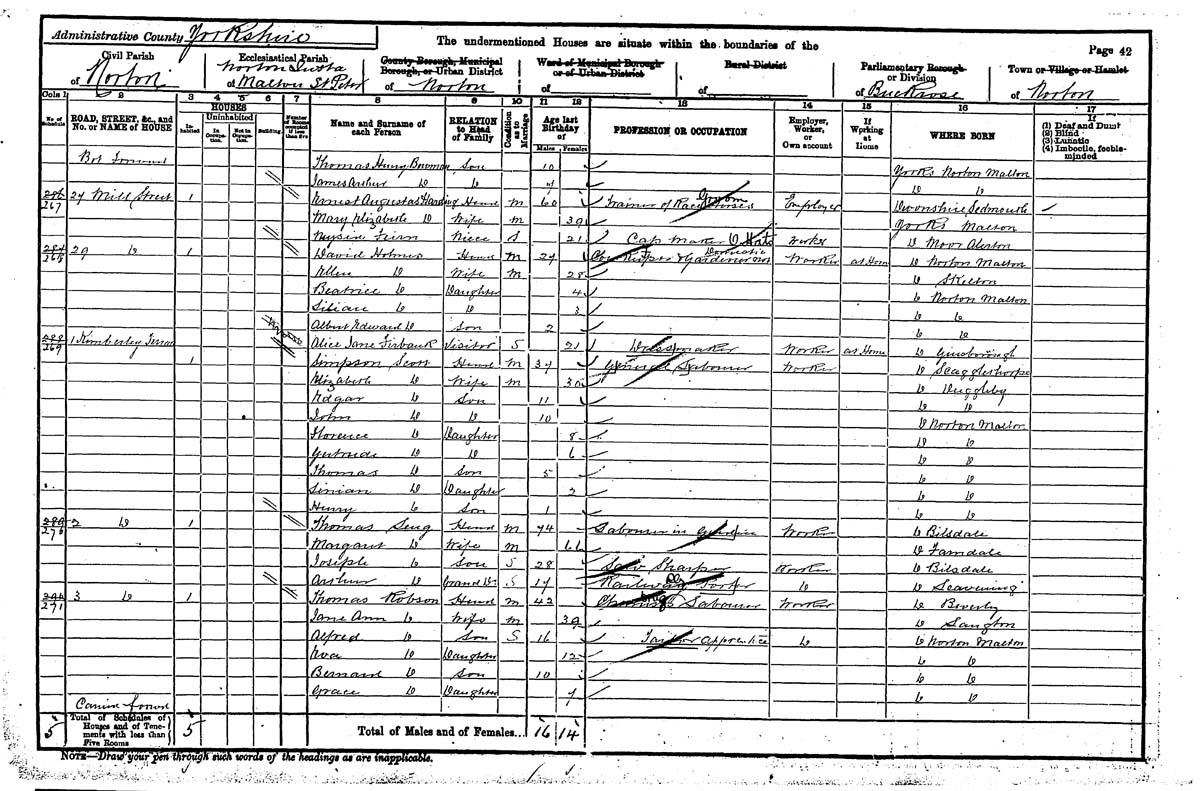 Administrative County Yorkshire
The undermentioned Houses are situate within the boundaries of the
Page 42
Civil Parish
of Norton
Ecclesiastical Parish
of Malton St Peter
County Borough, Municipal Borough, or Urban District
of Norton
Ward of Municipal Borough or of Urban District
of
Rural District
of
Parliamentary Borough or Division
of Buckrose
Town or Village or Hamlet
of Norton
Cols 1 2 3 4 5 6 7 8 9 10 11 12 13 14 15 16 17
No. of Schedule
ROAD, STREET, &c., and No. or NAME of HOUSE
HOUSES
Inhabited
Uninhabited
In Occupation.
Not in Occupation.
Building.
Number of Rooms occupied if less than five
Name and Surname of each Person
RELATION to Head of Family
Condition as to Marriage
Age last Birthday of
Males
Females
PROFESSION OR OCCUPATION
Employer, Worker, or Own account
If Working at Home
WHERE BORN
If (1) Deaf and Dumb (2) Blind (3) Lunatic (4) Imbecile, feeble-minded
Thomas Henry Bowman Son 10 Yorks Norton Malton
James Arthur Do Do 7 Do Do
267 27 Mill Street 1 Ernest Augustas Harding Head M 60 Trainer of Race Horses Groom Employer Devonshire Sedmouth
Mary Elizabeth Do Wife M 39 Yorks Malton
Niece S 21 Cap maker Worker Do
29 Do 1 David Holmes Head M 29 & Gardener Domestic Worker at Home Do Norton Malton
Ellen Do Wife M 28 Do Skelton
Beatrice Do Daughter 4 Do Norton Malton
Lilian Do Do 3 Do Do
Albert Edward Do Son 2 Do Do
269 1 Kimberley Terrace Alice Jane Firbank Visitor S 21 Dressmaker Worker at Home Do
1 Simpson Scott Head M 37 General Labourer Worker Do Scagglethorpe
Elizabeth Do Wife M 30 Do Duggleby
Edgar Do Son 11 Do Do
John Do Do 10 Do Norton Malton
Florence Do Daughter 8 Do Do
Gertrude Do Do 6 Do Do
Thomas Do Son 5 Do Do
Do Daughter 2 Do Do
Henry Do Son 1 Do Do
2 Do 1 Thomas Head M 74 Labourer in Worker Do Bilsdale
Margaret Do Wife M 66 Do Farndale
Joseph Do Son S 28 Saw Sharper Worker Do Bilsdale
Arthur Do S 17 Railway Porter Do Do
271 3 Do 1 Thomas Robson Head M 42 Labourer Worker Do Beverly
Jane Ann Do Wife M 39 Do Langton
Alfred Do Son S 16 Tailor apprentice Do Do Norton Malton
Eva Do Daughter 12 Do Do
Bernard Do Son 10 Do Do
Grace Do Daughter 7 Do Do
5 Total of Schedules of Houses and of Tenements with less than Five Rooms 5 Total of Males and of Females... 16 14
NOTE—Draw your pen through such words of the headings as are inapplicable.